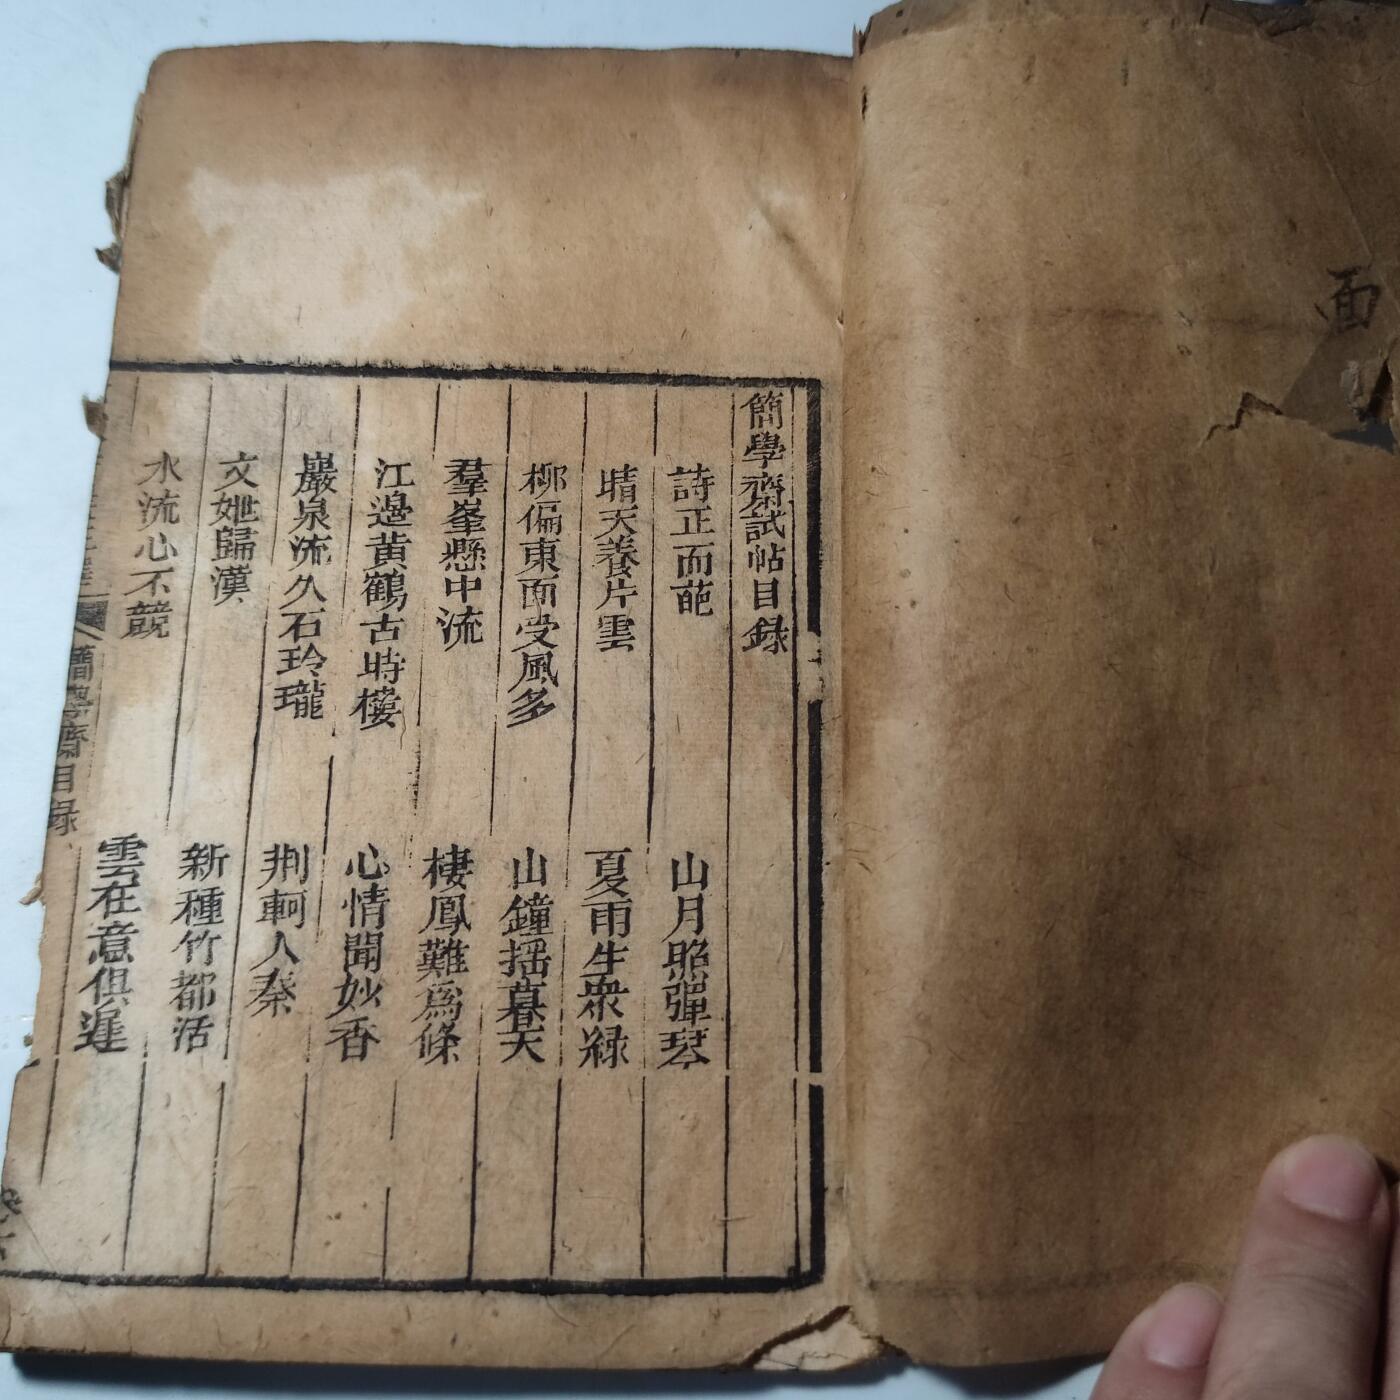 面
簡學齋試帖目録
詩正而葩
山月照彈琴
晴天養片雲
夏雨生衆綠
柳偏東面受風多
山鐘揺暮天
羣峯懸中流
棲鳳難爲條
江邊黄鶴古時樓
心情聞妙香
巖泉流久石玲瓏
荆軻入秦
文姬歸漢
新種竹都活
水流心不競
雲在意俱遲
簡學齋目録